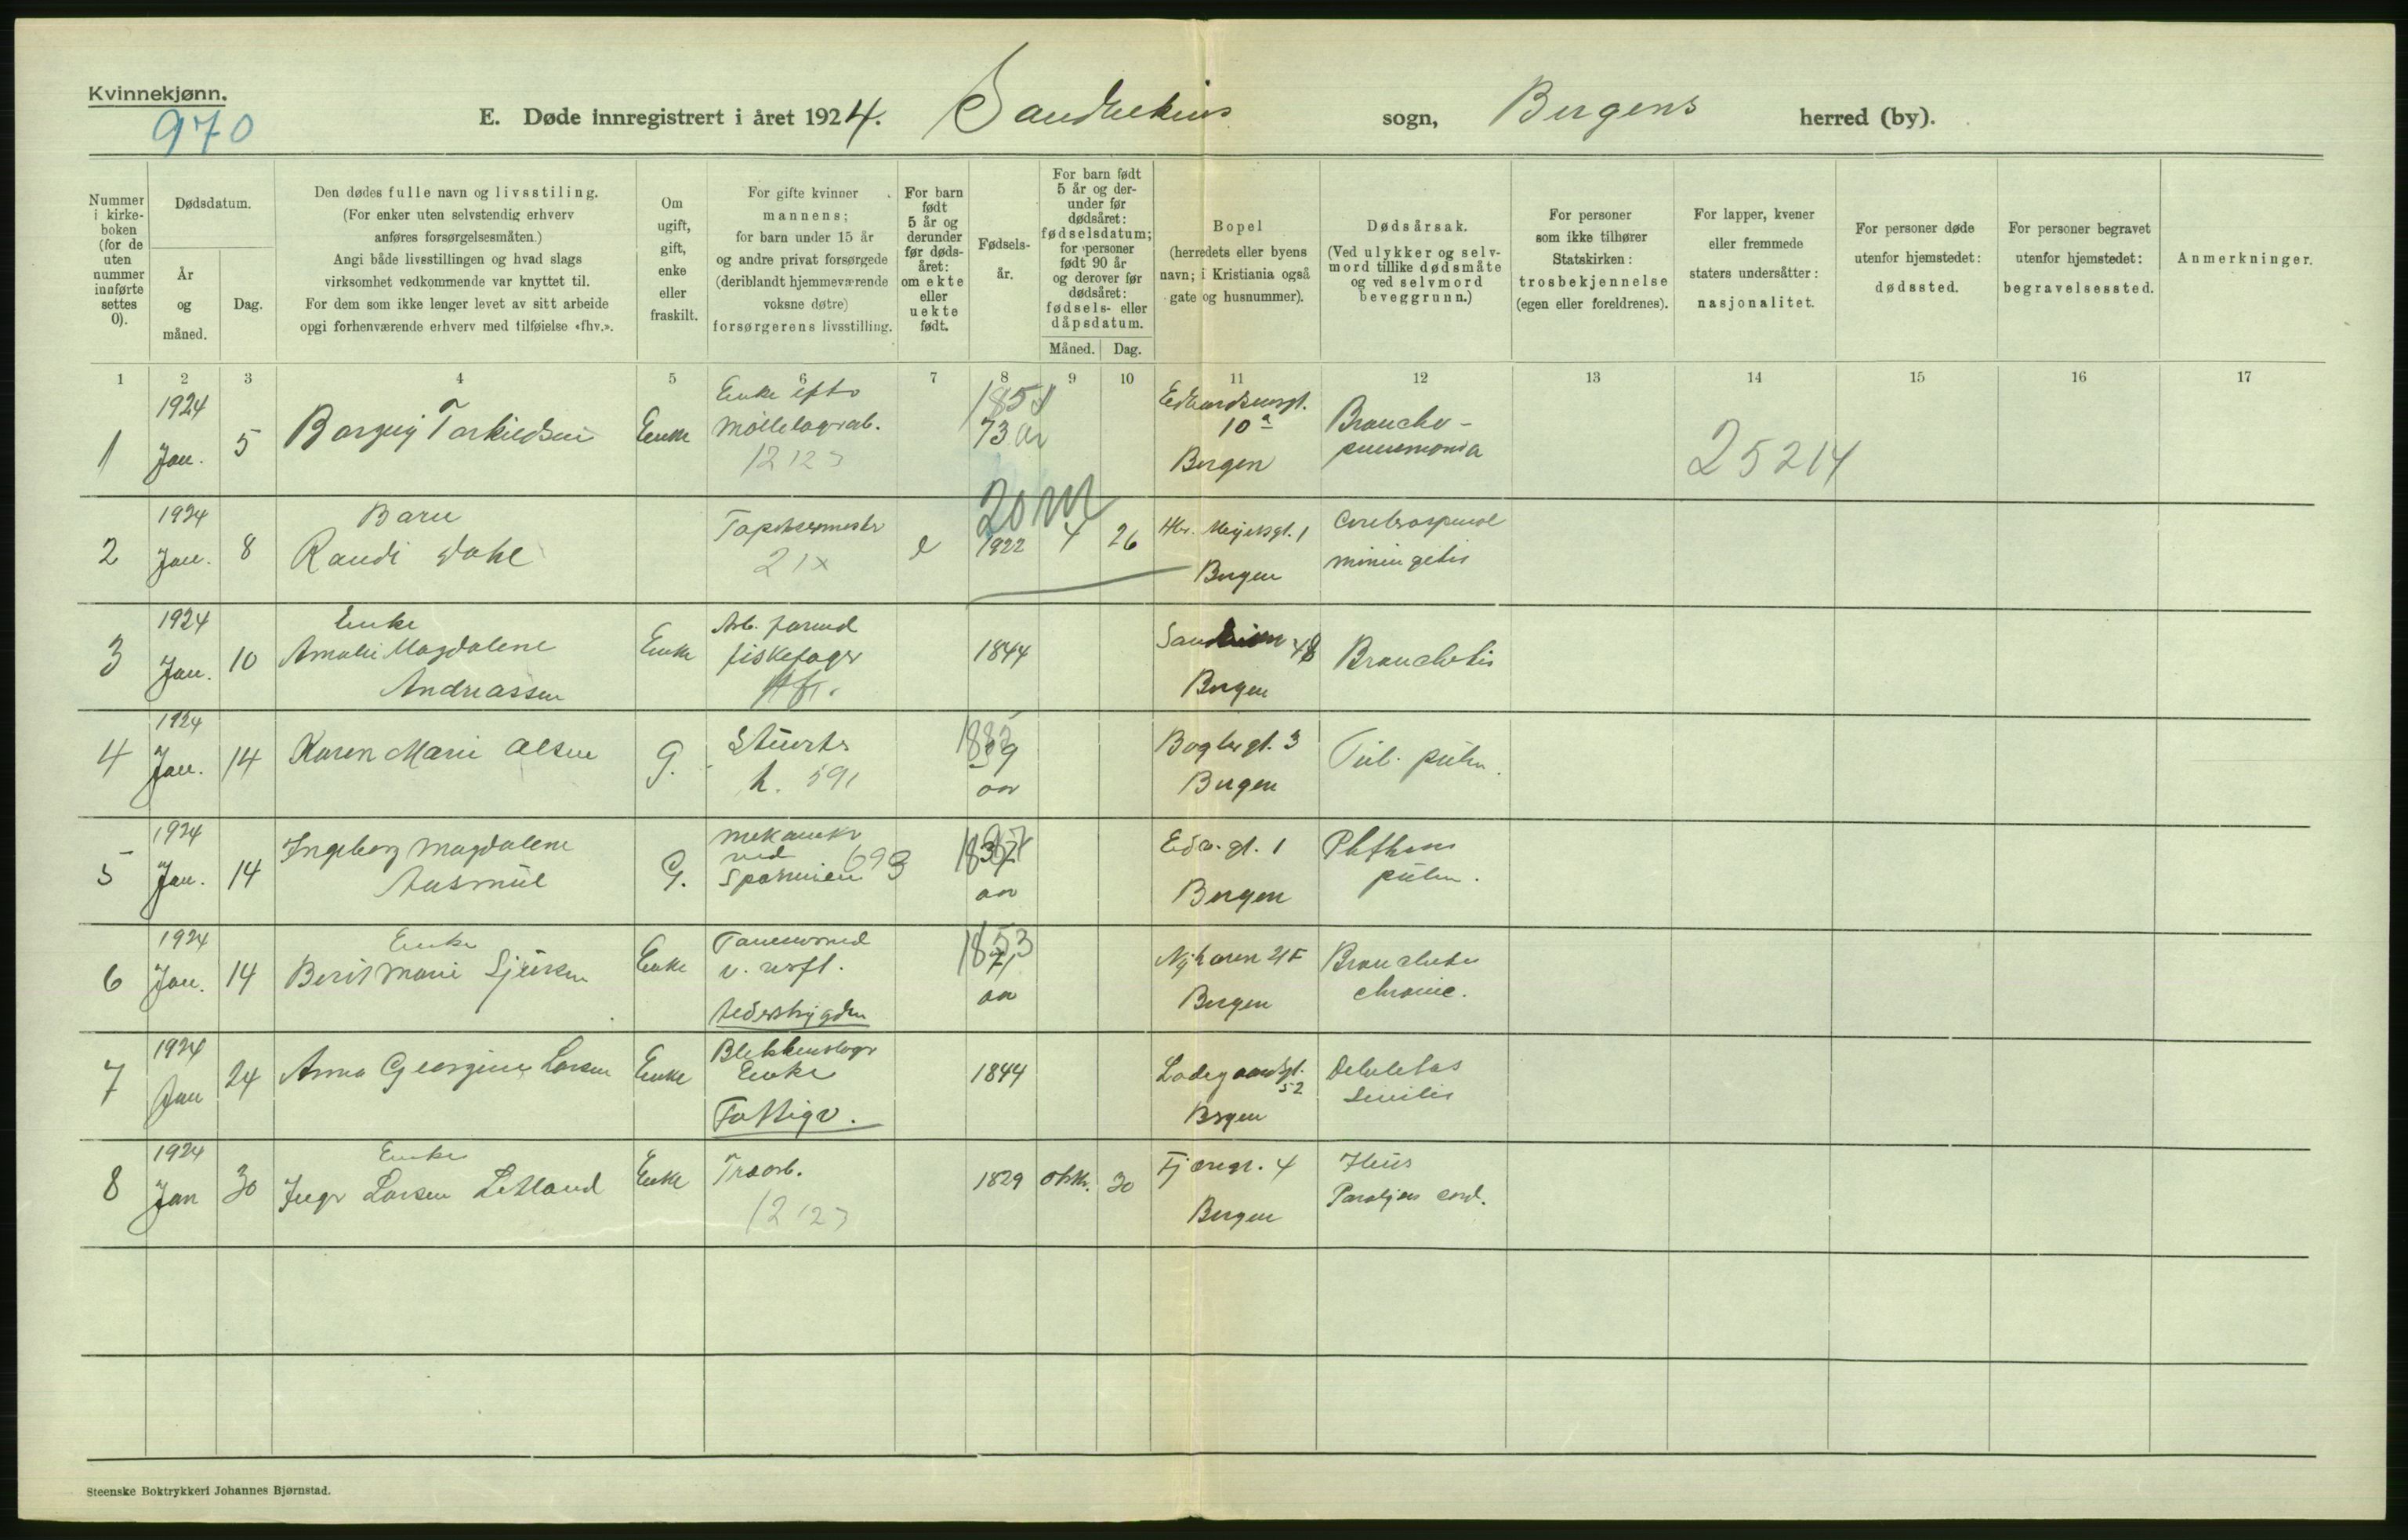 Kvinnekjønn.
970
E. Døde innregistrert i året 1924. Sandvikens sogn, Bergens herred (by).
Nummer i kirkeboken (for de uten nummer innførte settes 0).
Dødsdatum.
År og måned.
Dag.
Den dødes fulle navn og livsstiling.
(For enker uten selvstendig erhverv
anføres forsørgelsesmåten.)
Angi både livsstillingen og hvad slags
virksomhet vedkommende var knyttet til.
For dem som ikke lenger levet av sitt arbeide
opgi forhenværende erhverv med tilføielse «fhv.».
Om ugift, gift, enke eller fraskilt.
For gifte kvinner
mannens;
for barn under 15 år
og andre privat forsørgede
(deriblandt hjemmeværende
voksne døtre)
forsørgerens livsstilling.
For barn født 5 år og derunder før dødsåret: om ekte eller uekte født.
Fødselsår.
For barn født 5 år og derunder før dødsåret: fødselsdatum; for personer født 90 år og derover før dødsåret: fødsels- eller dåpsdatum.
Måned. Dag.
Bopel
(herredets eller byens
navn; i Kristiania også
gate og husnummer).
Dødsårsak.
(Ved ulykker og selvmord tillike dødsmåte og ved selvmord beveggrunn.)
For personer
som ikke tilhører
Statskirken:
trosbekjennelse
(egen eller foreldrenes).
For lapper, kvener
eller fremmede
staters undersåtter:
nasjonalitet.
For personer døde
utenfor hjemstedet:
dødssted.
For personer begravet
utenfor hjemstedet:
begravelsessted.
Anmerkninger.
1 2 3 4 5 6 7 8 9 10 11 12 13 14 15 16 17
1 1924 Jan. 5 Enke Enke efter 12127 73 år 10a Bergen Broncho-pneumonia 25214
2 1924 Jan. 8 Barn Randi Dahl Tapetsermester 21x e 20 m 1922 4 26 Bergen Cerebrospinal
3 1924 Jan. 10 Enke Amalie Magdalene Andreassen Enke Arb. formand fiskelager 1844 48 Bergen Bronchitis
4 1924 Jan. 14 Karen Marie Olsen G. h. 591 39 aar 3 Bergen Tub. pulm.
5 1924 Jan. 14 Ingeborg Magdalene G. mekaniker ved Sporveien 693 aar 1 Bergen pulm.
6 1924 Jan. 14 Enke Berit Marie Sjursen Enke 1853 71 aar Bergen chronic.
7 1924 Jan 24 Anna Georgine Larsen Enke Enke Fattigv. 1844 Ladegaardsgt. 52 Bergen senilis
8 1924 Jan 30 Enke Larsen Enke 12127 1829 oktbr. 30 4 Bergen cord.
Steenske Boktrykkeri Johannes Bjørnstad.